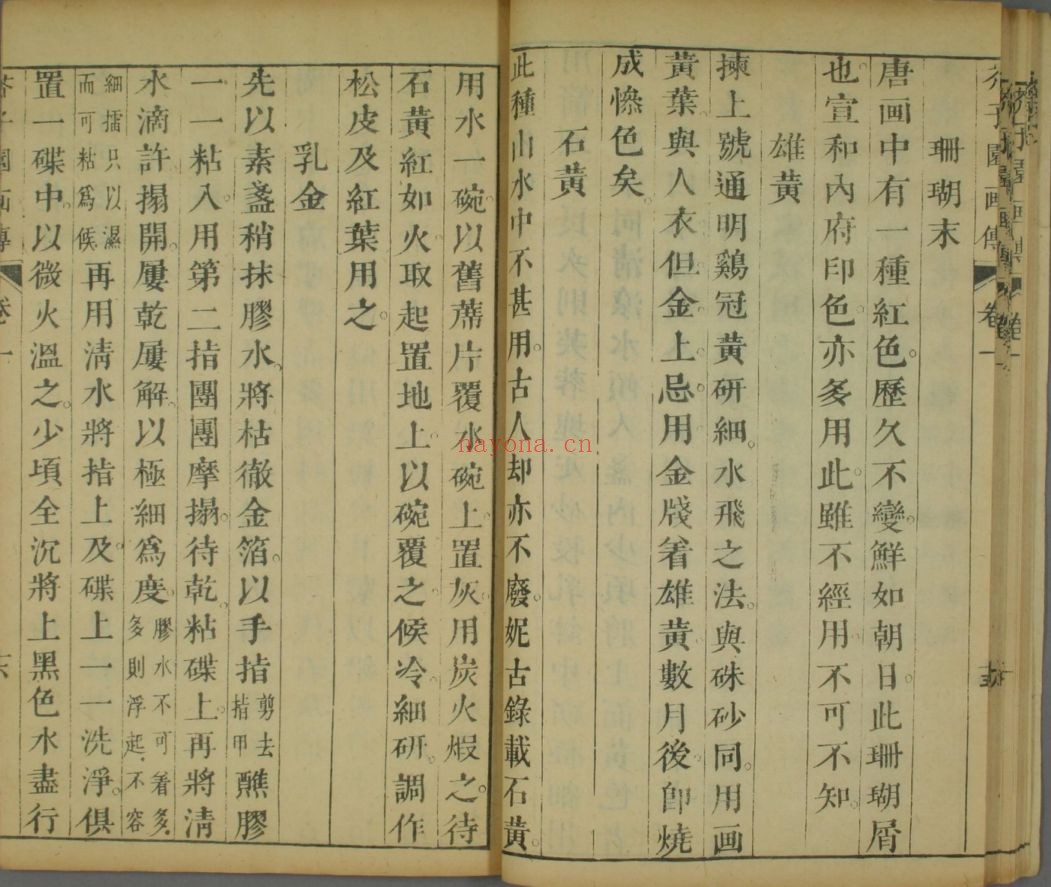 芥子園画傳 卷一
珊瑚末
唐画中有一種紅色。歷久不變。鮮如朝日。此珊瑚屑
也。宣和內府印色。亦多用此。雖不經用。不可不知。
雄黃
揀上號通明鷄冠黃研細。水飛之法。與硃砂同。用画
黃葉與人衣。但金上。忌用金牋着雄黃。數月後。卽燒
成慘色矣。
石黃
此種山水中不甚用。古人却亦不廢。妮古錄載石黃。
用水一碗。以舊蓆片覆水碗上。置灰。用炭火煆之。待
石黃紅如火。取起置地上。以碗覆之。候冷。細研。調作
松皮及紅葉用之。
乳金
先以素盞稍抹膠水。將枯徹金箔。以手指剪去指甲蘸膠
一一粘入。用第二指團團摩搨。待乾。粘碟上。再將清
水滴許搨開。屢乾屢解。以極細爲度。膠水不可着多。多則浮起。不容
細擂只以濕而可粘爲候再用清水將指上。及碟上一一洗淨。俱
置一碟中。以微火溫之。少頃全沉。將上黑色水盡行
芥子園画傳 卷一 六
nayona.cn